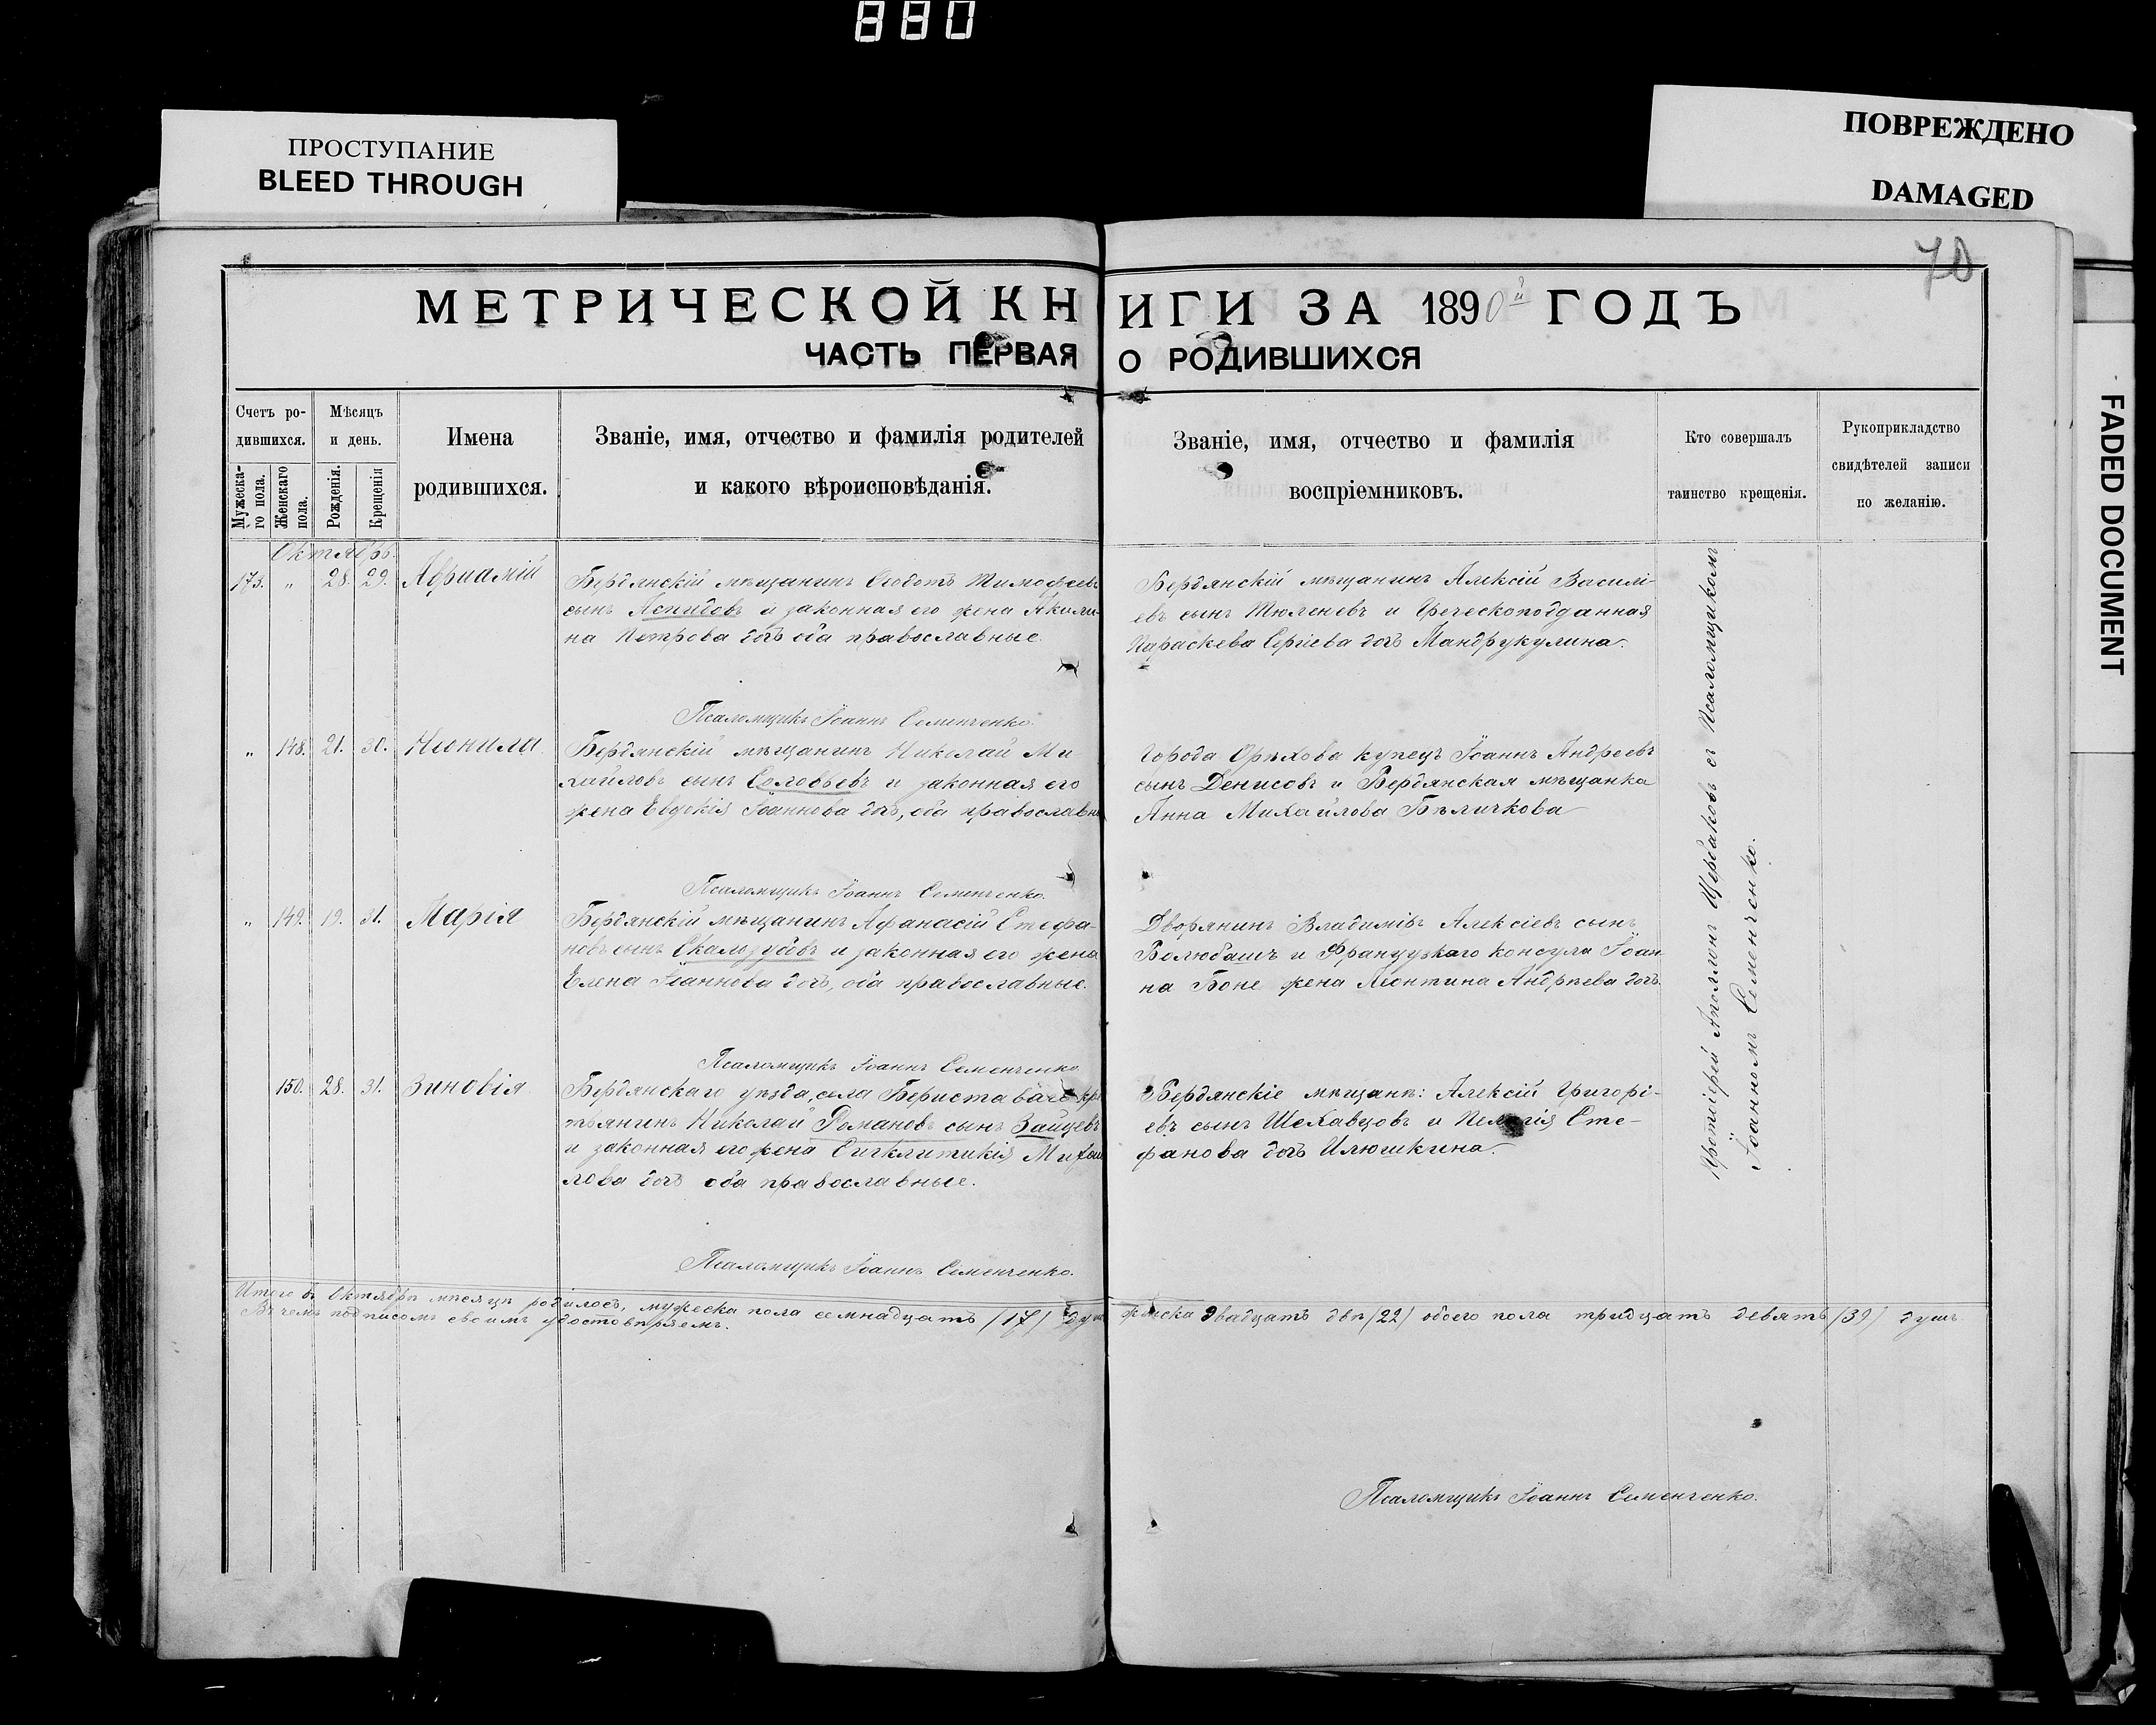 880
ПРОСТУПАНИЕ
BLEED THROUGH
ПОВРЕЖДЕНО
DAMAGED
FADED DOCUMENT
70
МЕТРИЧЕСКОЙ КНИГИ ЗА 1890й ГОДЪ
ЧАСТЬ ПЕРВАЯ О РОДИВШИХСЯ
Счетъ ро-
дившихся.
Мужеска-
го пола.
Женскаго
пола.
Мѣсяцъ
и день.
Рожденія.
Крещенія
Имена
родившихся.
Званіе, имя, отчество и фамилія родителей
и какого вѣроисповѣданія.
Званіе, имя, отчество и фамилія
воспріемниковъ.
Кто совершалъ
таинство крещенія.
Рукоприкладство
свидѣтелей записи
по желанію.
Октябрь
173. " 28. 29. Авриамій
Бердянскій мѣщанинъ Ѳеодотъ Тимофеевъ
сынъ Аспидовъ и законная его жена Акили-
на Петрова дочь оба православные.
Псаломщикъ Іоаннъ Семенченко.
Бердянскій мѣщанинъ Алексій Василі-
евъ сынъ Тюленевъ и Греческоподданная
Параскева Сергіева дочь Мандрукулина.
" 148. 21. 30. Неонила
Бердянскій мѣщанинъ Николай Ми-
хайловъ сынъ Соловьевъ и законная его
жена Евдокія Іоаннова дочь, оба православны
Псаломщикъ Іоаннъ Семенченко.
Города Орѣхова купецъ Іоаннъ Андреевъ
сынъ Денисовъ и Бердянская мѣщанка
Анна Михайлова Бѣличкова
" 149. 19. 31. Марія
Бердянскій мѣщанинъ Афанасій Стефа-
новъ сынъ Скалозубовъ и законная его жена
Елена Іоаннова дочь, оба православные.
Псаломщикъ Іоаннъ Семенченко
Дворянинъ Владиміръ Алексіевъ сынъ
Волюбашъ и Французкаго консула Іоан-
на Боне жена Леонтина Андрѣева дочь.
150. 28. 31. Зиновія
Бердянскаго уѣзда, села Берестоваго кре
тьянинъ Николай Романовъ сынъ Зайцевъ
и законная его жена Синклитикія Михай
лова дочь оба православные.
Псаломщикъ Іоаннъ Семенченко.
Бердянскіе мѣщане: Алексій Григорі-
евъ сынъ Шехавцовъ и Пелагія Сте-
фанова дочь Илюшкина.
Протоіерей Аполлонъ Щербаковъ съ Псаломщикомъ
Іоанномъ Семенченко.
Итого въ Октябрѣ мѣсяцѣ родилось, мужеска пола семнадцать (17) душ женска двадцать двѣ (22) обоего пола тридцать девять (39) душъ
Въ чемъ подписомъ своимъ удостовѣряемъ.
Псаломщикъ Іоаннъ Семенченко.